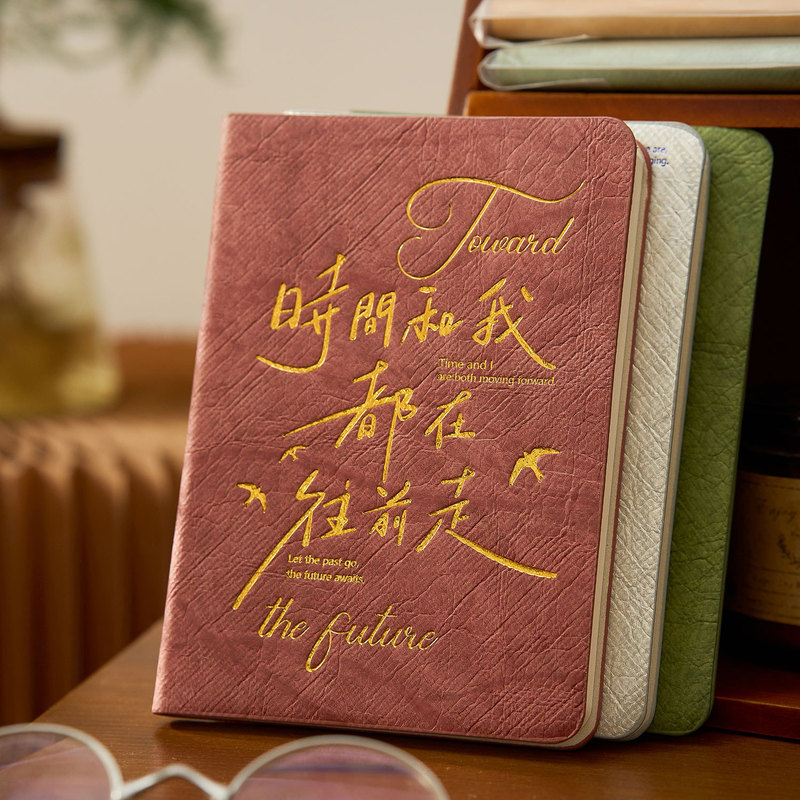 Toward
時間和我
Time and I
are both moving forward
都在
往前走
Let the past go,
the future awaits.
the future